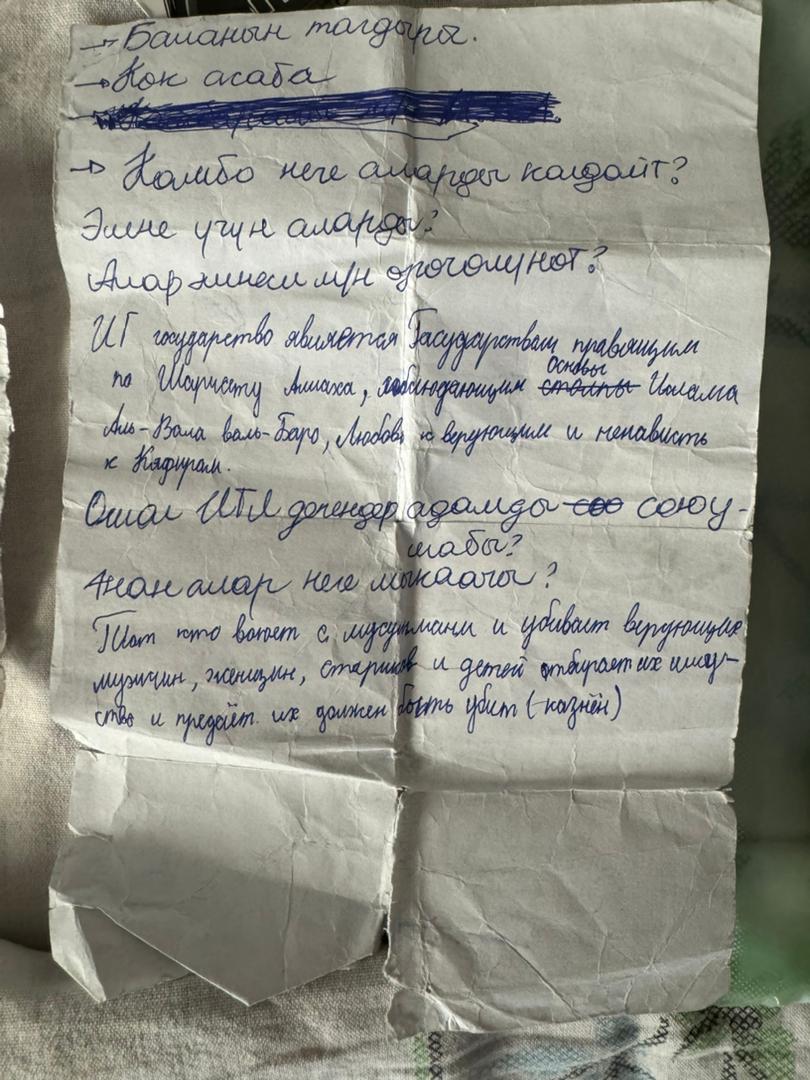 → Баланын тагдыры.
→ Кок асаба
→ Камбо неге аларды колдойт?
Эмне учун аларды?
Алар минеси м/н орочолунот?
ИГ государство является Гасударствам правящим
по Шариату Аллаха, соблюдающим столпы Основы Ислама
Аль-Вала валь-Баро, Любовь к верующим и ненависть
к Кафирам.
Ошол ИГИЛ дегендер адамды соо союу-
шабы?
Анан алар неге мыкаачы?
Тот кто воюет с мусулманми и убивает верующих
мужчин, женщин, стариков и детей отбирает их имущ-
ство и предаёт их должен быть убит (-казнён)